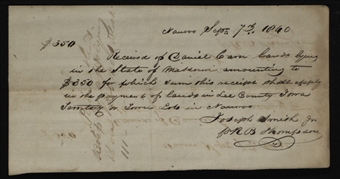 Nauvoo Sept 7th 1840
$350
Received of Daniel Carn Lands lying
in the State of Missouri amounting to
$350 for which sum this receipt shall apply
in the payment of lands in Lee County Iowa
Territory or Town Lots in Nauvoo
Joseph Smith Jr
Per R B Thompson